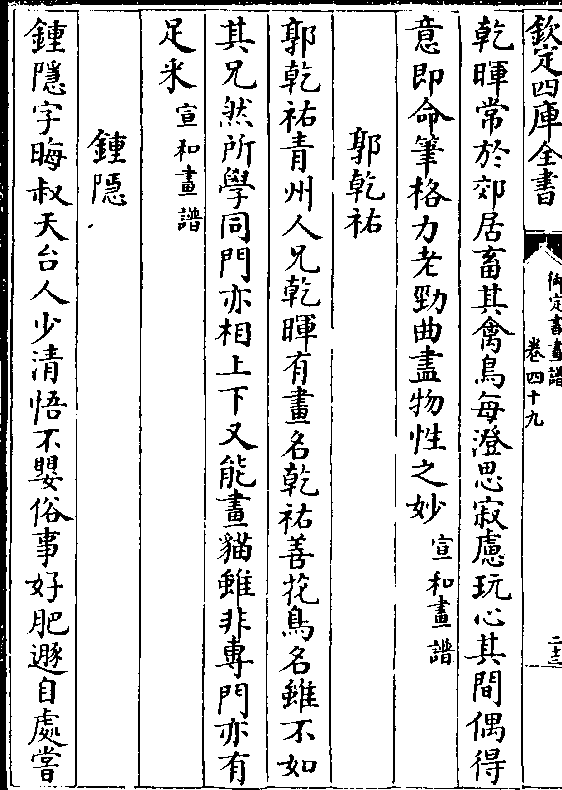 欽定四庫全書
御定書畫譜
卷四十九
二十三
乾暉常於郊居畜其禽鳥每澄思寂慮玩心其間偶得
意即命筆格力老勁曲盡物性之妙宣和畫譜
郭乾祐
郭乾祐青州人兄乾暉有畫名乾祐善花鳥名雖不如
其兄然所學同門亦相上下又能畫貓雖非專門亦有
足米宣和畫譜
鍾隱
鍾隱字晦叔天台人少清悟不嬰俗事好肥遯自處嘗